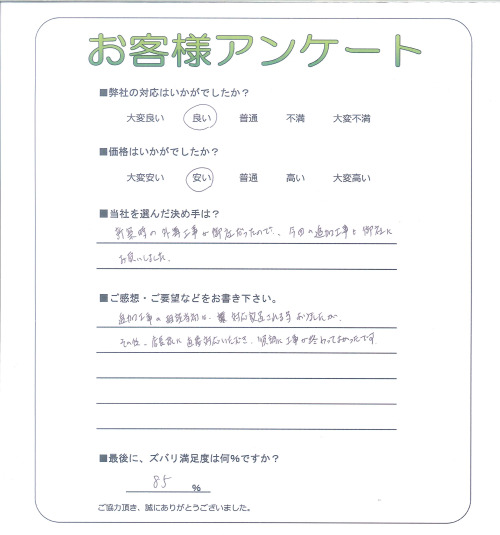 お客様アンケート
■弊社の対応はいかがでしたか？
大変良い 良い 普通 不満 大変不満
■価格はいかがでしたか？
大変安い 安い 普通 高い 大変高い
■当社を選んだ決め手は？
新築時の外構工事が御社だったので、今回の追加工事も御社に
お願いしました。
■ご感想・ご要望などをお書き下さい。
追加工事の
その後、 工事が終わってよかったです。
■最後に、ズバリ満足度は何％ですか？
85 ％
ご協力頂き、誠にありがとうございました。